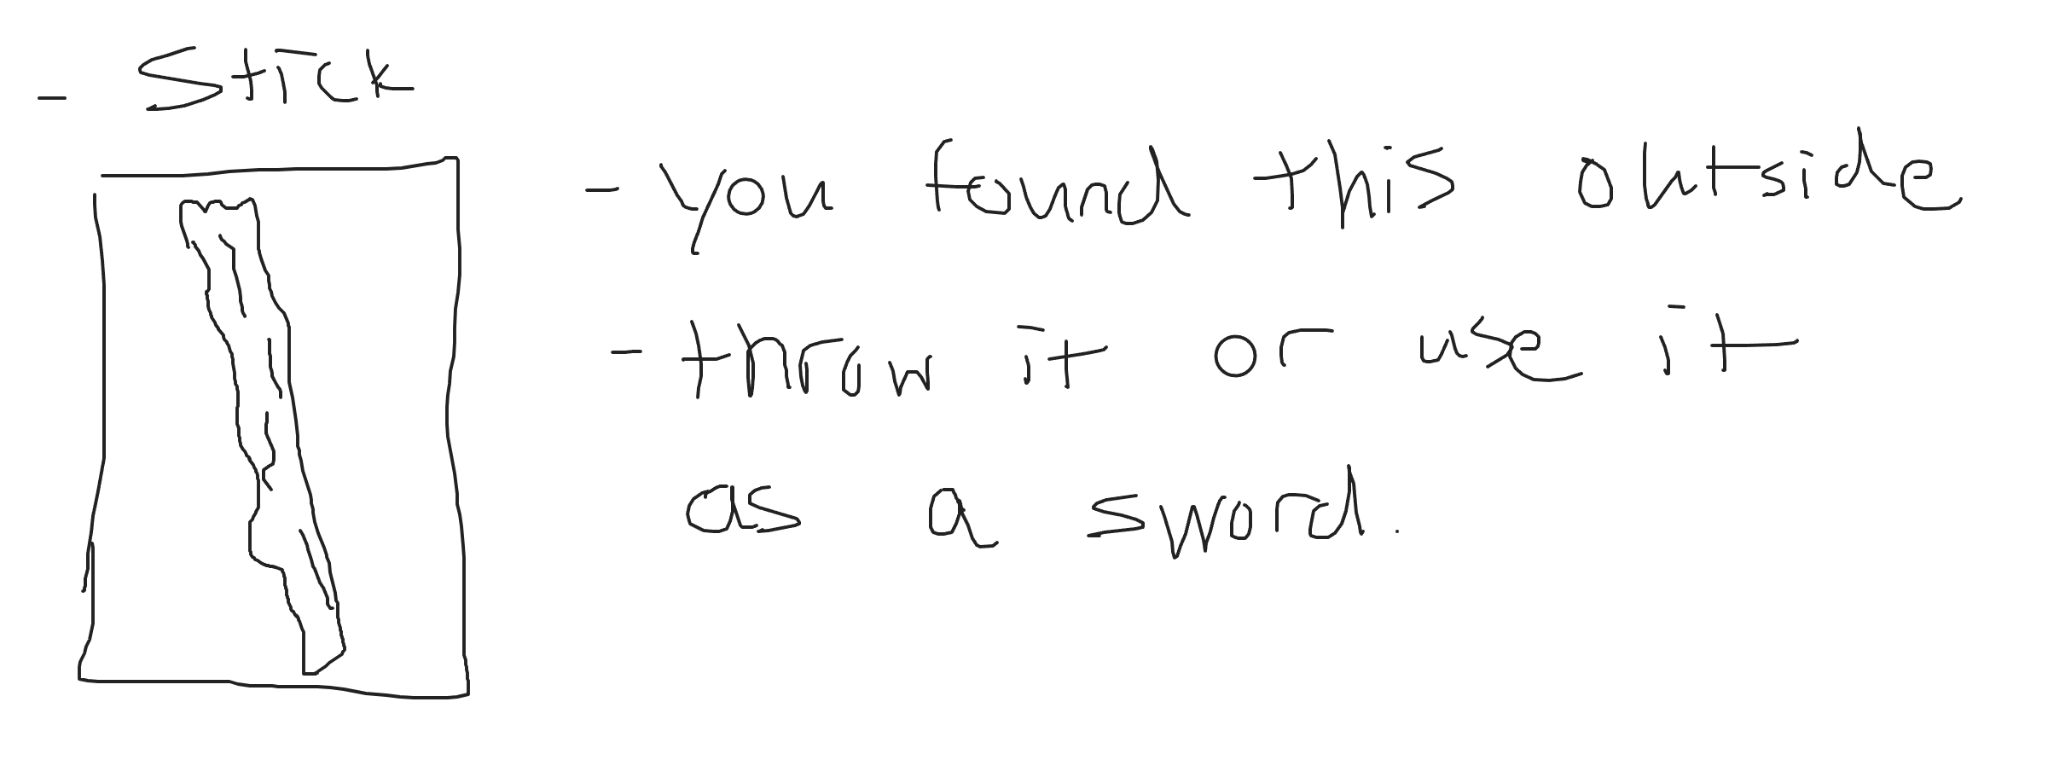 - Stick
- you found this outside
- throw it or use it
as a sword.